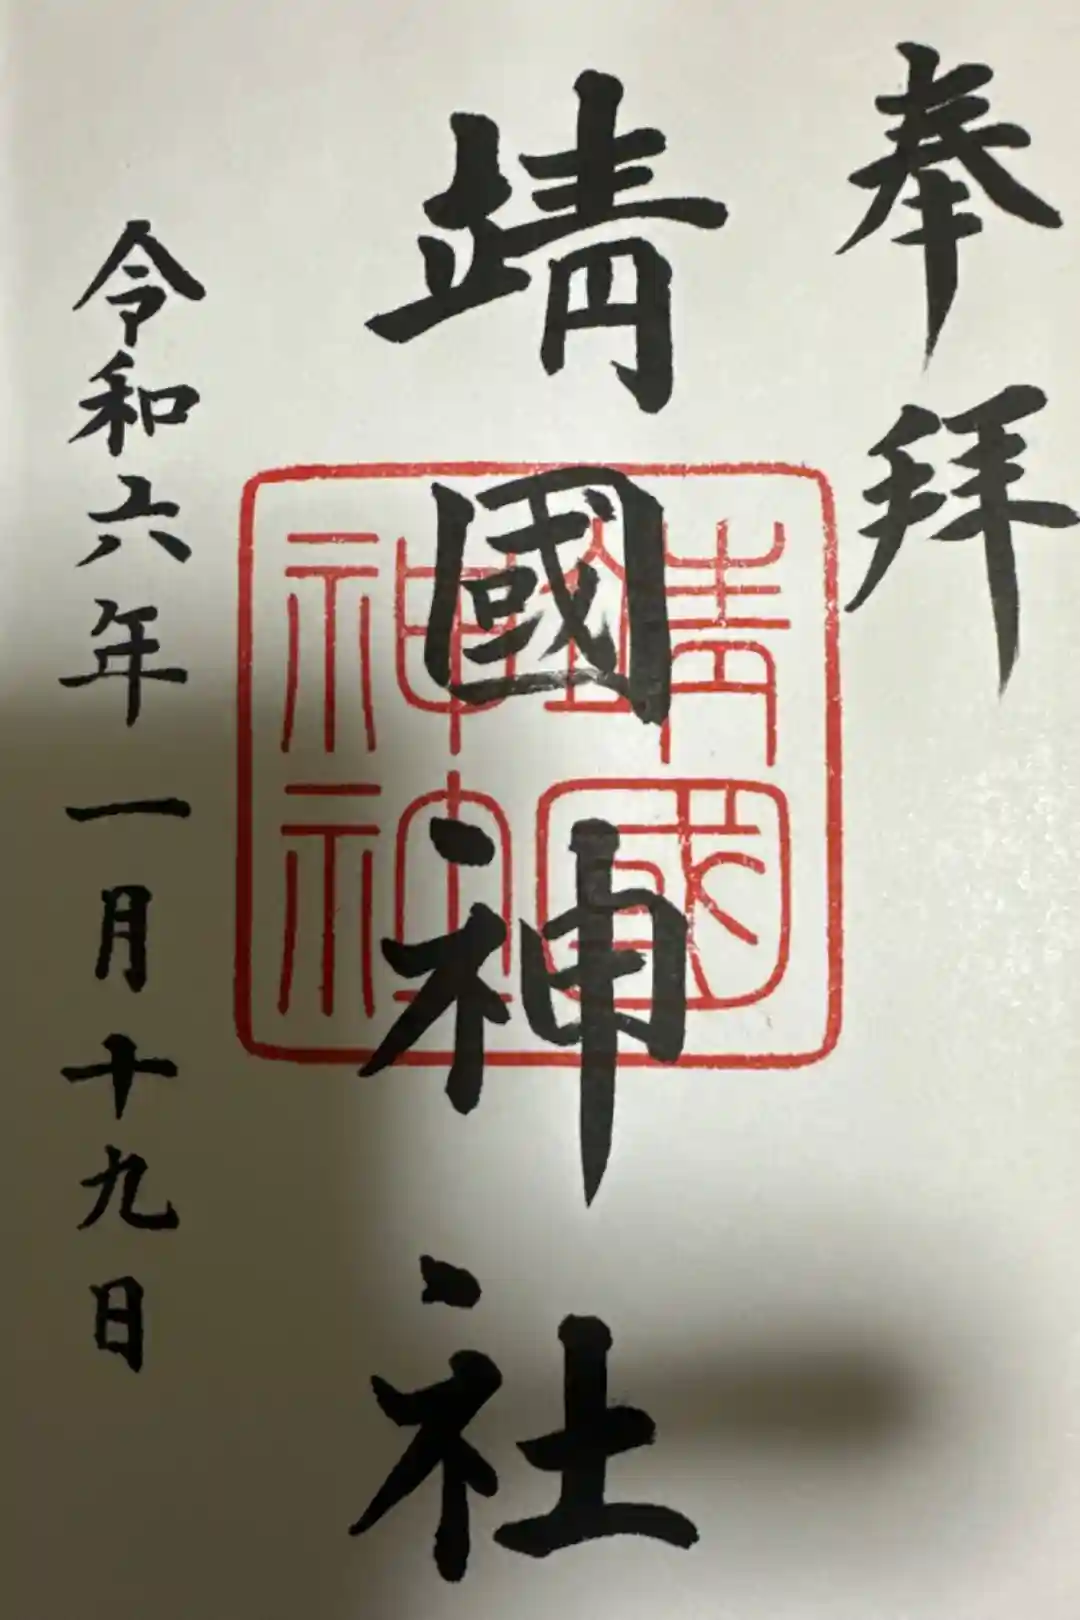 奉拜
靖國神社
靖國
神社
令和六年一月十九日